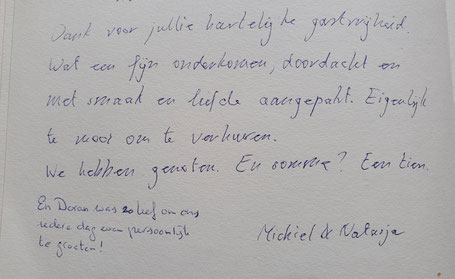 Dank voor jullie hartelijke gastvrijheid.
Wat een fijn onderkomen, doordacht en
met smaak en liefde aangepakt. Eigenlijk
te mooi om te verhuren.
We hebben genoten. En somma? Een tien.
En Doran was zo lief om ons
iedere dag even persoonlijk
te groeten!
Michiel & Natasja